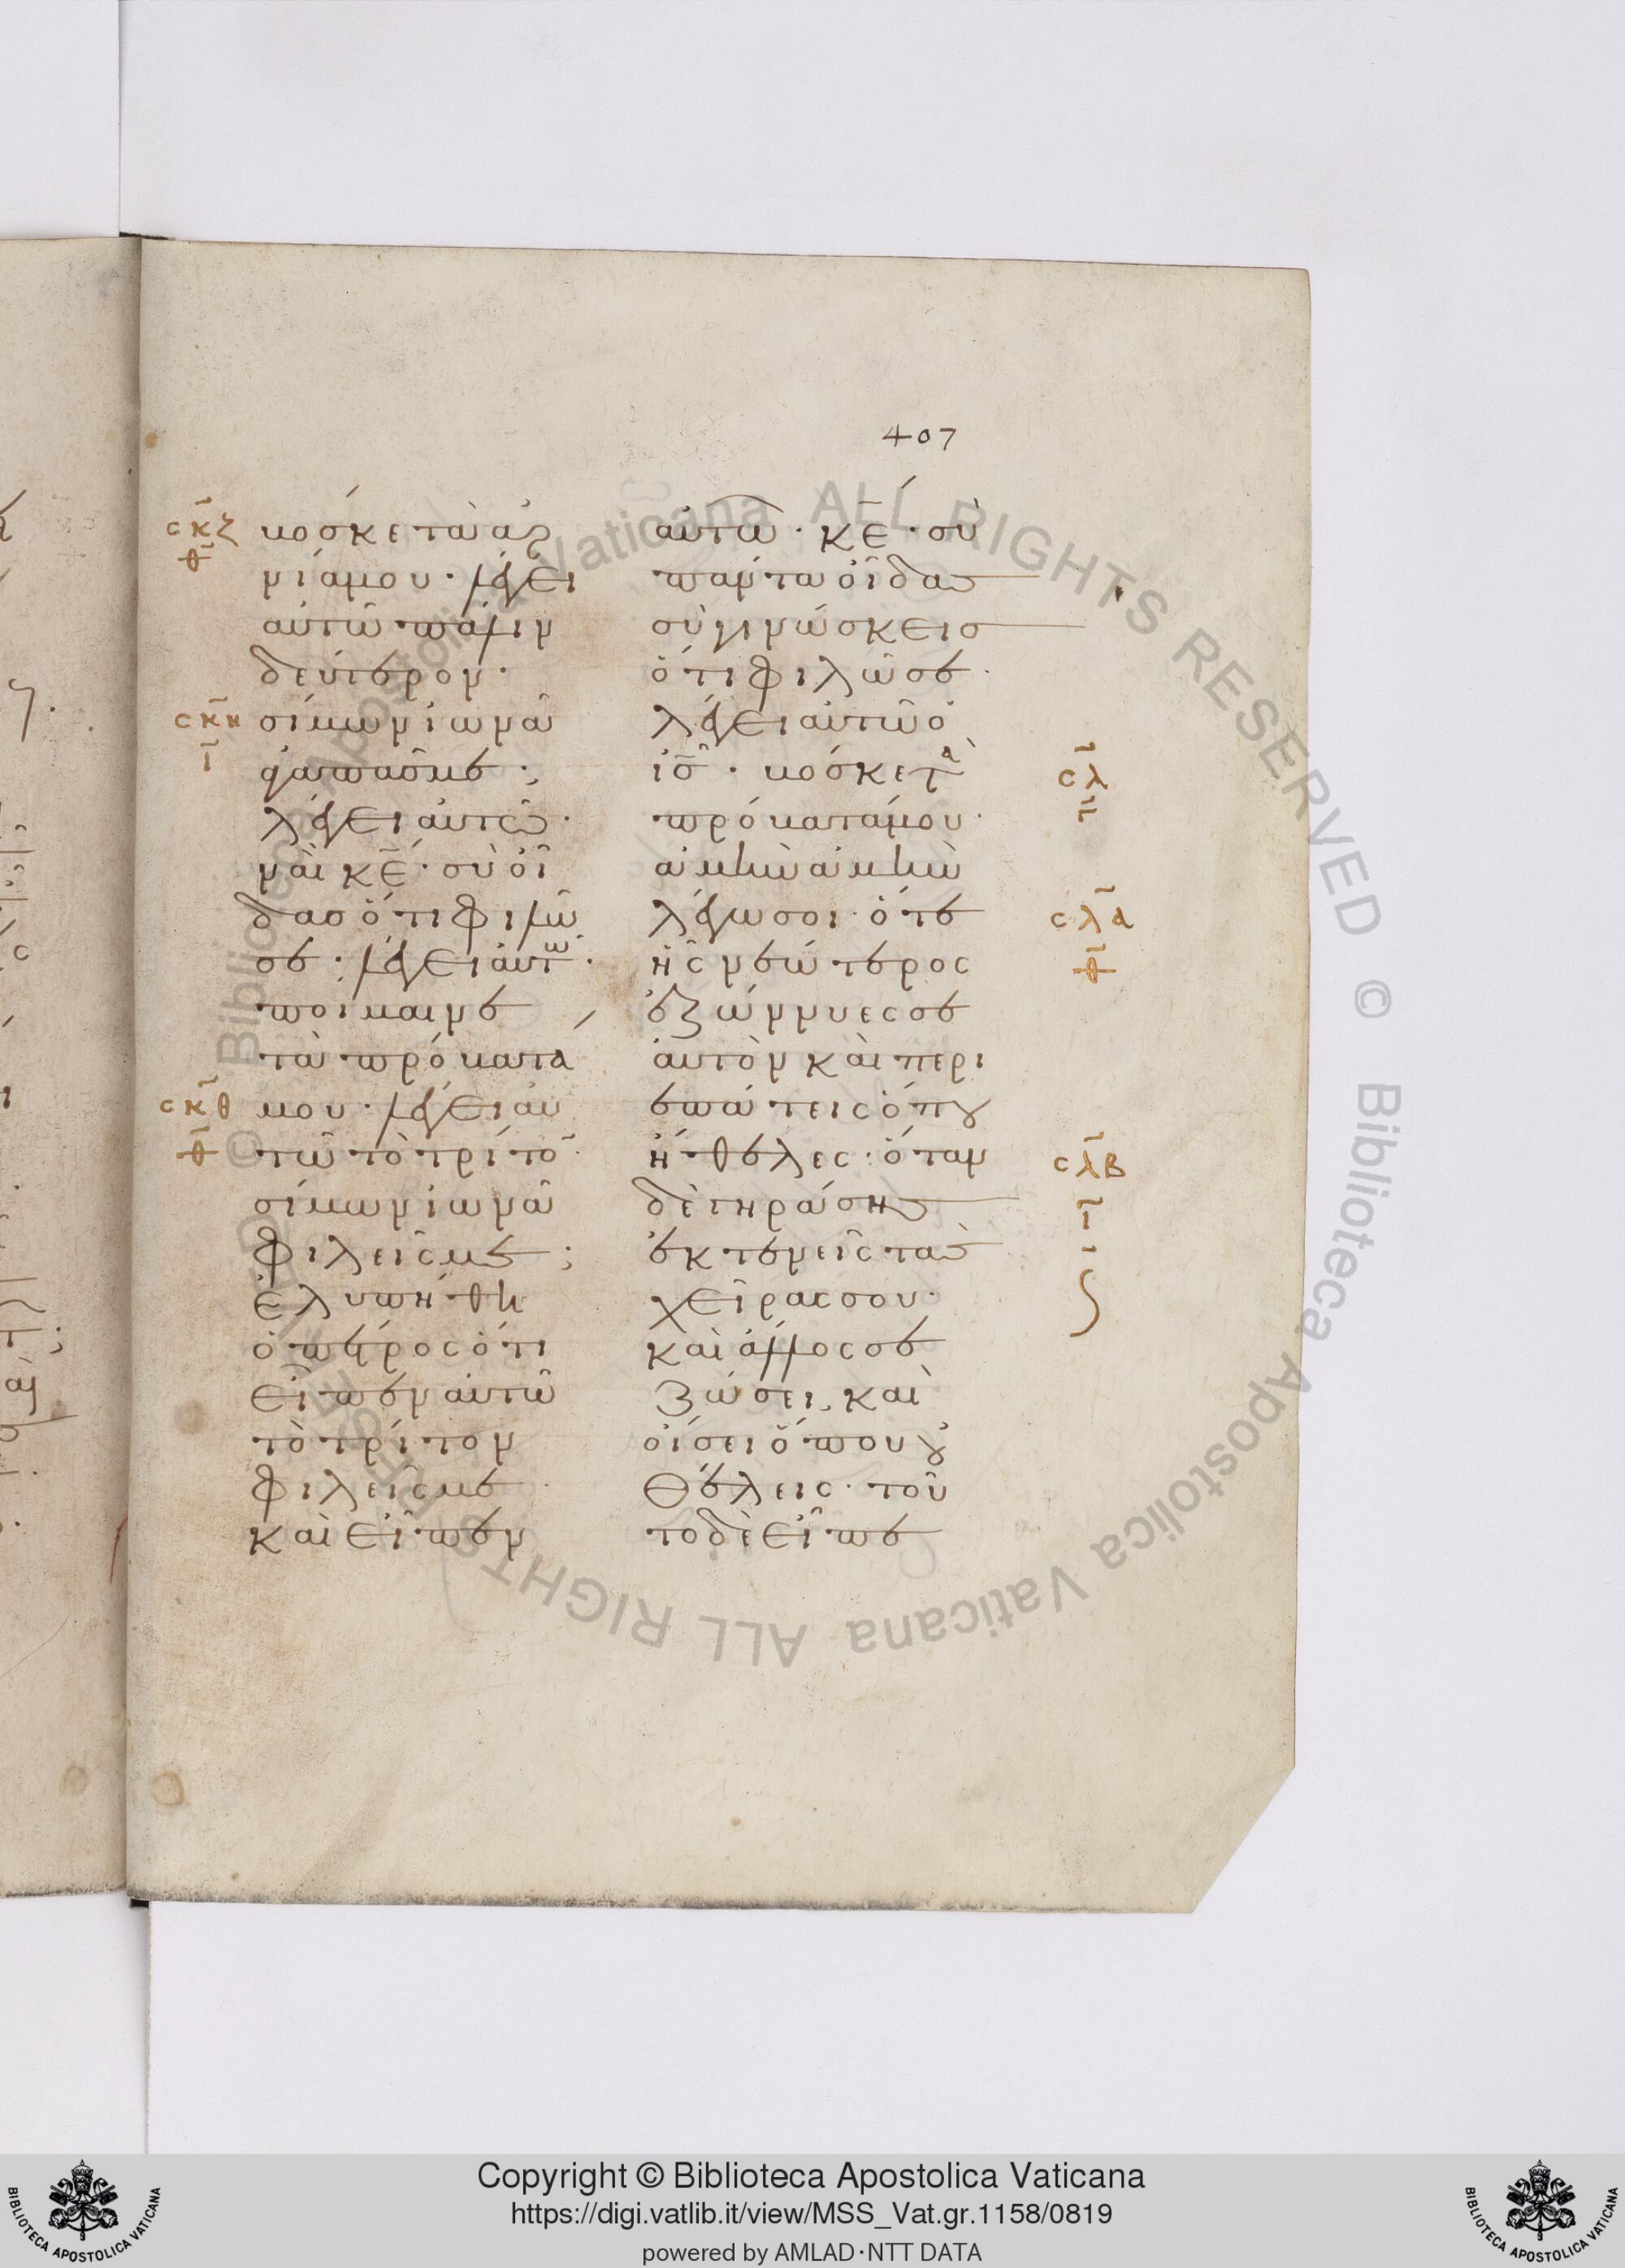 407
σκζ
θ
βόσκε τὰ ἀρ
νία μου· λέγει
αὐτῶ πάλιν
δεύτερον·
σκη
ι
σίμων ἰωνᾶ
ἀγαπᾶς με;
λέγει αὐτῶ·
ναὶ κε· σὺ οἶ
δας ὅτι φιλῶ
σε· λέγει αὐτω·
ποίμαινε
τὰ πρόβατά
σκθ
θ
μου· λέγει αὐ
τῶ τὸ τρίτο
σίμων ἰωνᾶ
φιλεῖς με;
ἐλυπήθη
ὁ πέτρος ὅτι
εἶπεν αὐτῶ
τὸ τρίτον
φιλεῖς με
καὶ εἶπεν
αὐτῶ· κε· σὺ
πάντα οἶδας
σὺ γινώσκεις
ὅτι φιλῶ σε·
λέγει αὐτῶ ὁ
ις· βόσκε τὰ
πρόβατά μου·
ἀμὴν ἀμὴν
λέγω σοι· ὅτε
ἦς νεώτερος
ἐζώννυες σε
αὐτὸν καὶ περι
επάτεις ὅπου
ἤθελες· ὅταν
δὲ γηράσης
ἐκτενεῖς τὰς
χεῖρας σου·
καὶ ἄλλος σε
ζώσει, καὶ
οἴσει ὅπου οὐ
θέλεις· τοῦ
το δὲ εἶπε
σλ
σλα
θ
σλβ
ι
Copyright © Biblioteca Apostolica Vaticana
https://digi.vatlib.it/view/MSS_Vat.gr.1158/0819
powered by AMLAD·NTT DATA
BIBLIOTECA APOSTOLICA VATICANA
BIBLIOTECA APOSTOLICA VATICANA